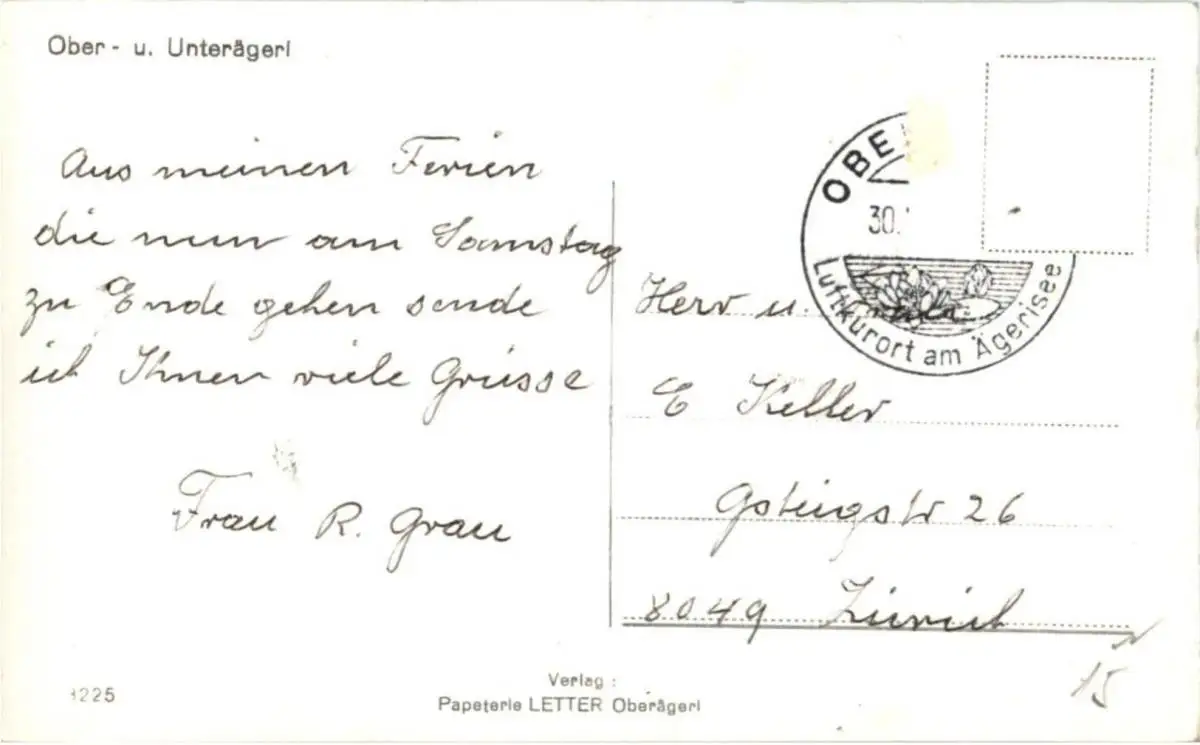 Ober- u. Unterägeri
Aus meinen Ferien
die nun am Samstag
zu Ende gehen sende
ich Ihnen viele Grüsse
Frau R. Grau
OBE
30.
Luftkurort am Ägerisee
Herr u.
E Keller
Gsteigstr 26
8049 Zürich
15
Verlag:
Papeterie LETTER Oberägeri
1225